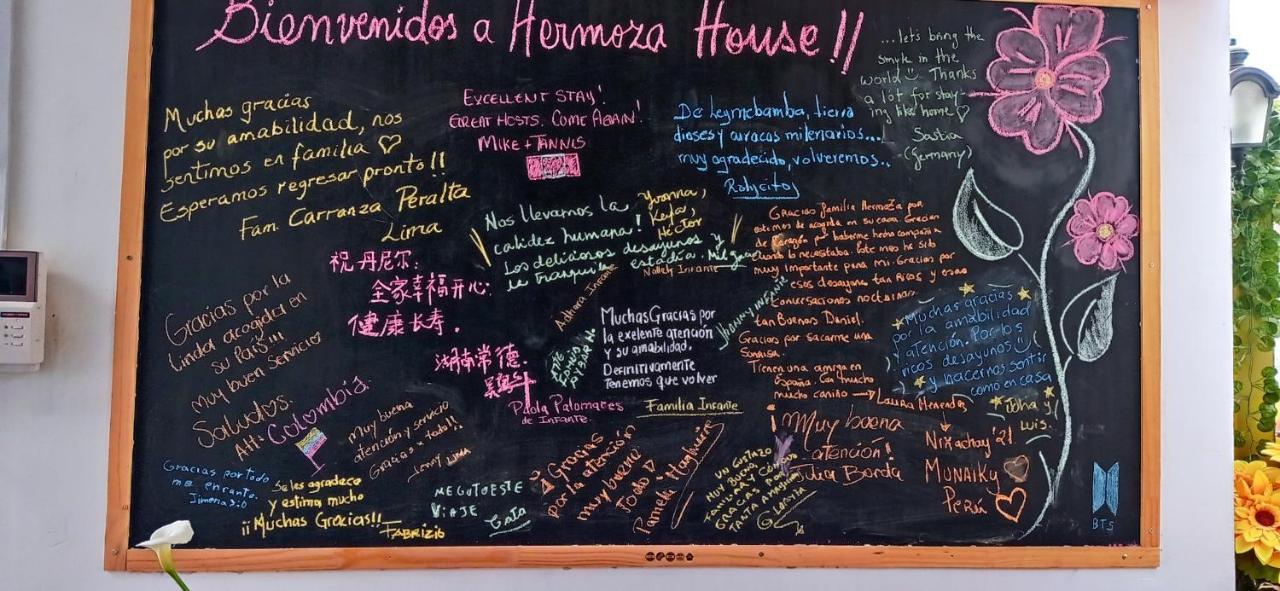 Bienvenidos a Hermoza House!!
Muchas gracias
por su amabilidad, nos
sentimos en familia
Esperamos regresar pronto!!
Fam. Carranza Peralta
Lima
EXCELLENT STAY!
GREAT HOSTS. COME AGAIN!
MIKE + TANNIS
De Leymebamba, tierra
dioses y curacas milenarios...
muy agradecido, volveremos..
Ralycitos
...let's bring the
smyle in the
world Thanks
a lot for stay-
ing like home
Saskia
(Germany)
Nos llevamos la
calidez humana!
Los deliciosos desayunos y
la tranquila estadía. Mil gra
Yvonna,
Keyla,
Héctor
祝丹尼尔:
全家幸福开心.
健康长寿.
湖南常德.
Gracias familia Hermoza por
de corazón por haberme hecho compañía
cuando lo necesitaba. Este mes ha sido
muy importante para mi. Gracias por
esos desayunos tan ricos y esas
conversaciones nocturnas
tan Buenas Daniel.
Gracias por sacarme una
Sonrisa.
Tienen una amiga en
España. Con mucho
cariño → Laura Menendes
Gracias por la
linda acogida en
su País!!!
muy buen servicio
Saludos.
Att: Colombia.
Nolely Infante
Jhanny Infante
Muchas Gracias por
la exelente atención
y su amabilidad,
Definitivamente
Tenemos que volver
Paola Palomares
de Infante.
Familia Infante
Muchas gracias
por la amabilidad
y atención. Por los
ricos desayunos
y hacernos sentir
como en casa
Joha y
Luis.
Muy buena
atención y servicio
Gracias x todo!!
Jenny Lima
Gracias por todo
me encanto.
Jimena :D
Se les agradece
y estima mucho
¡¡Muchas Gracias!!
Fabrizio
ME GUTO ESTE
VIAJE
Gracias
por la atención
muy bueno
todo
Pamela
UN GUSTAZO
GRACIAS POR
TANTA AMABILIDAD
Muy buena
atención!
Julia Borda
Nixachay'21
MUNAIKY
Perú
BTS